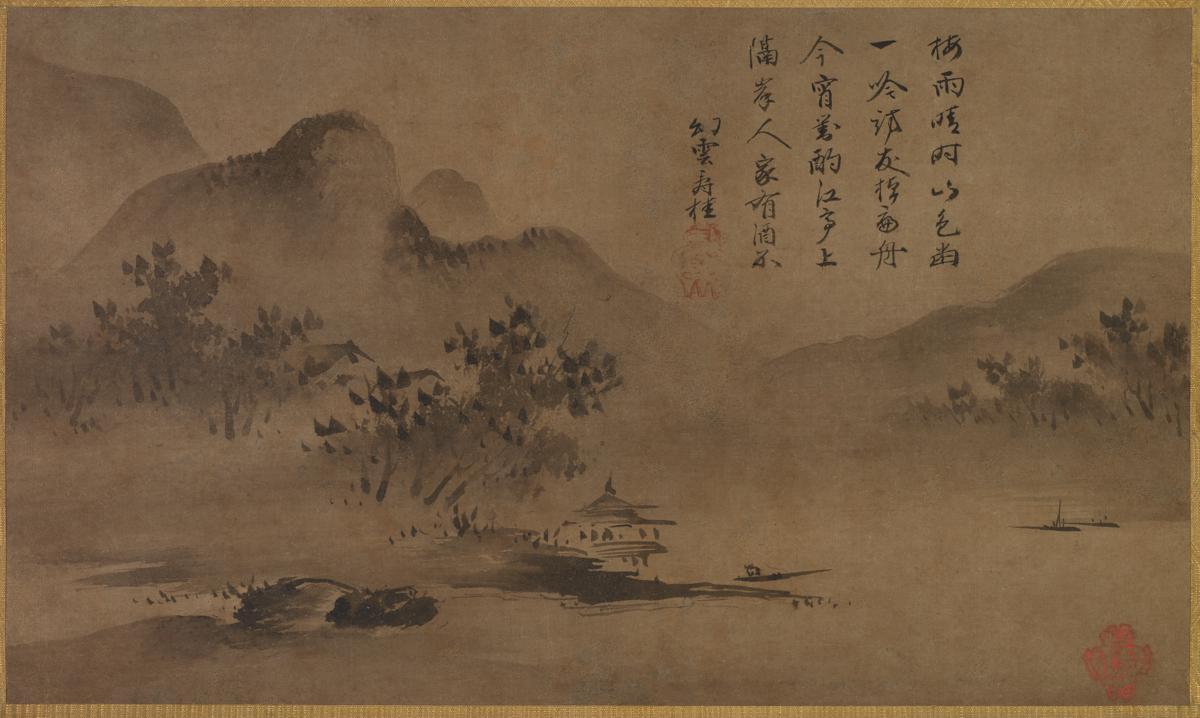 梅雨晴时山色幽
一吟訪友棹扁舟
今宵對酌江亭上
隔岸人家有酒不
幻雲寿桂